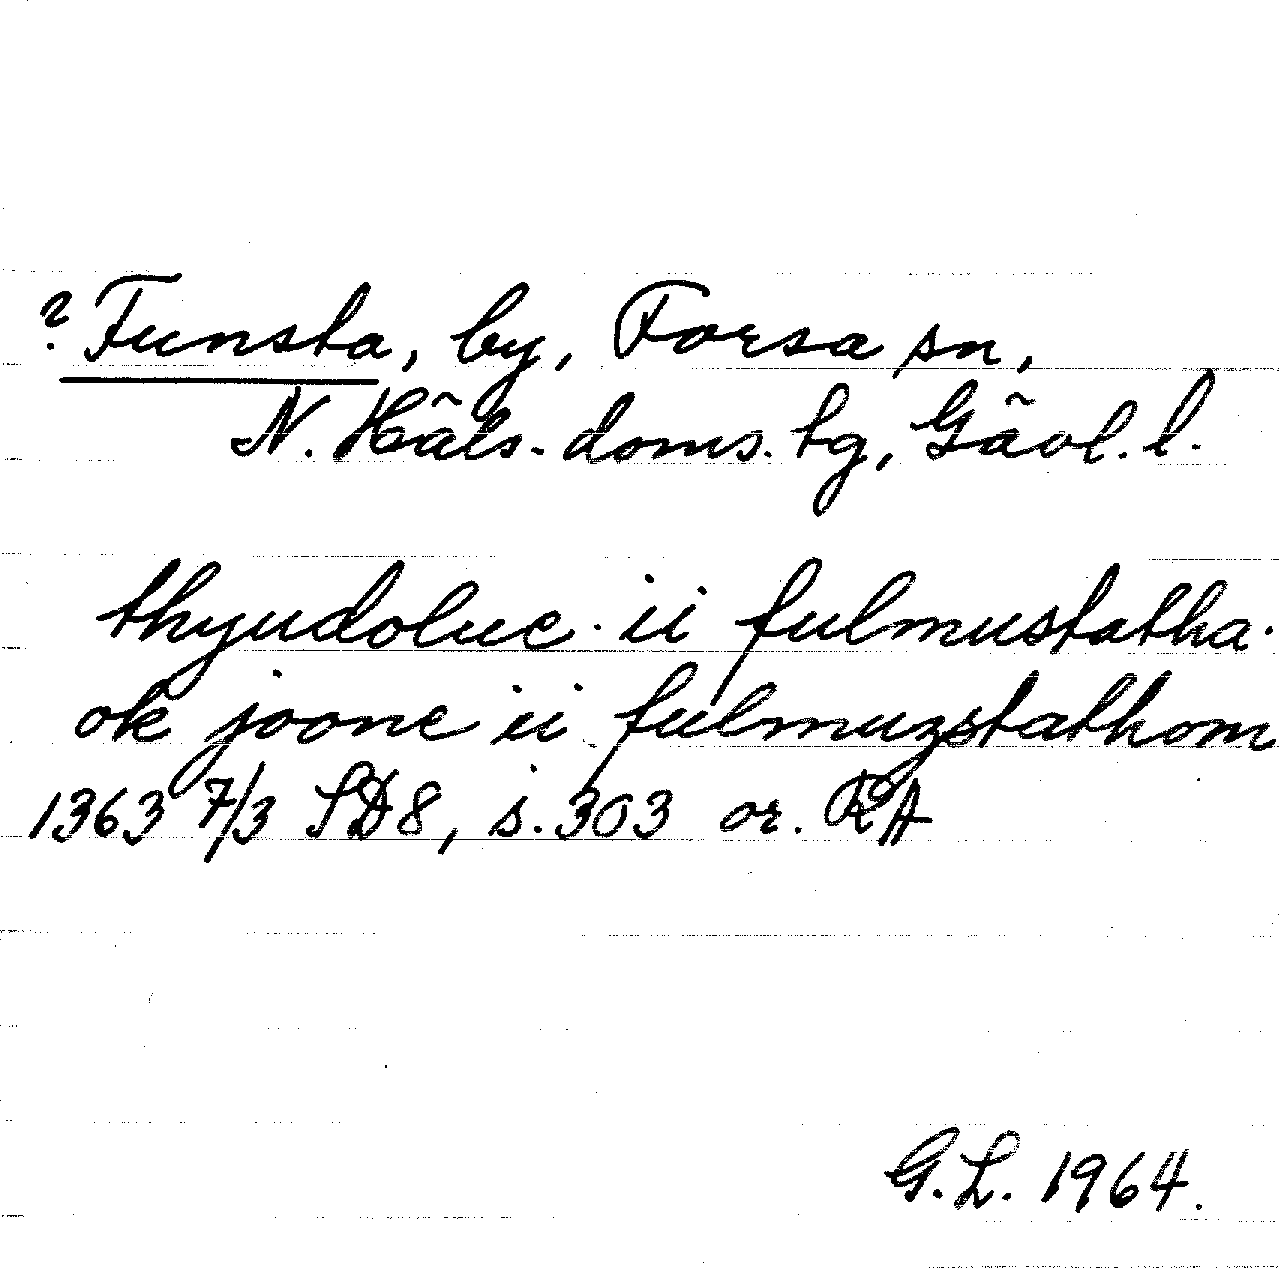 ? Funsta, by, Forsa sn,
N. Häls. doms. tg, Gävl. l.
thyudoluc · ii fulmustatha ·
ok joone ii fulmuzstathom
1363 7/3 SD8, s. 303 or. RA
G.L. 1964.